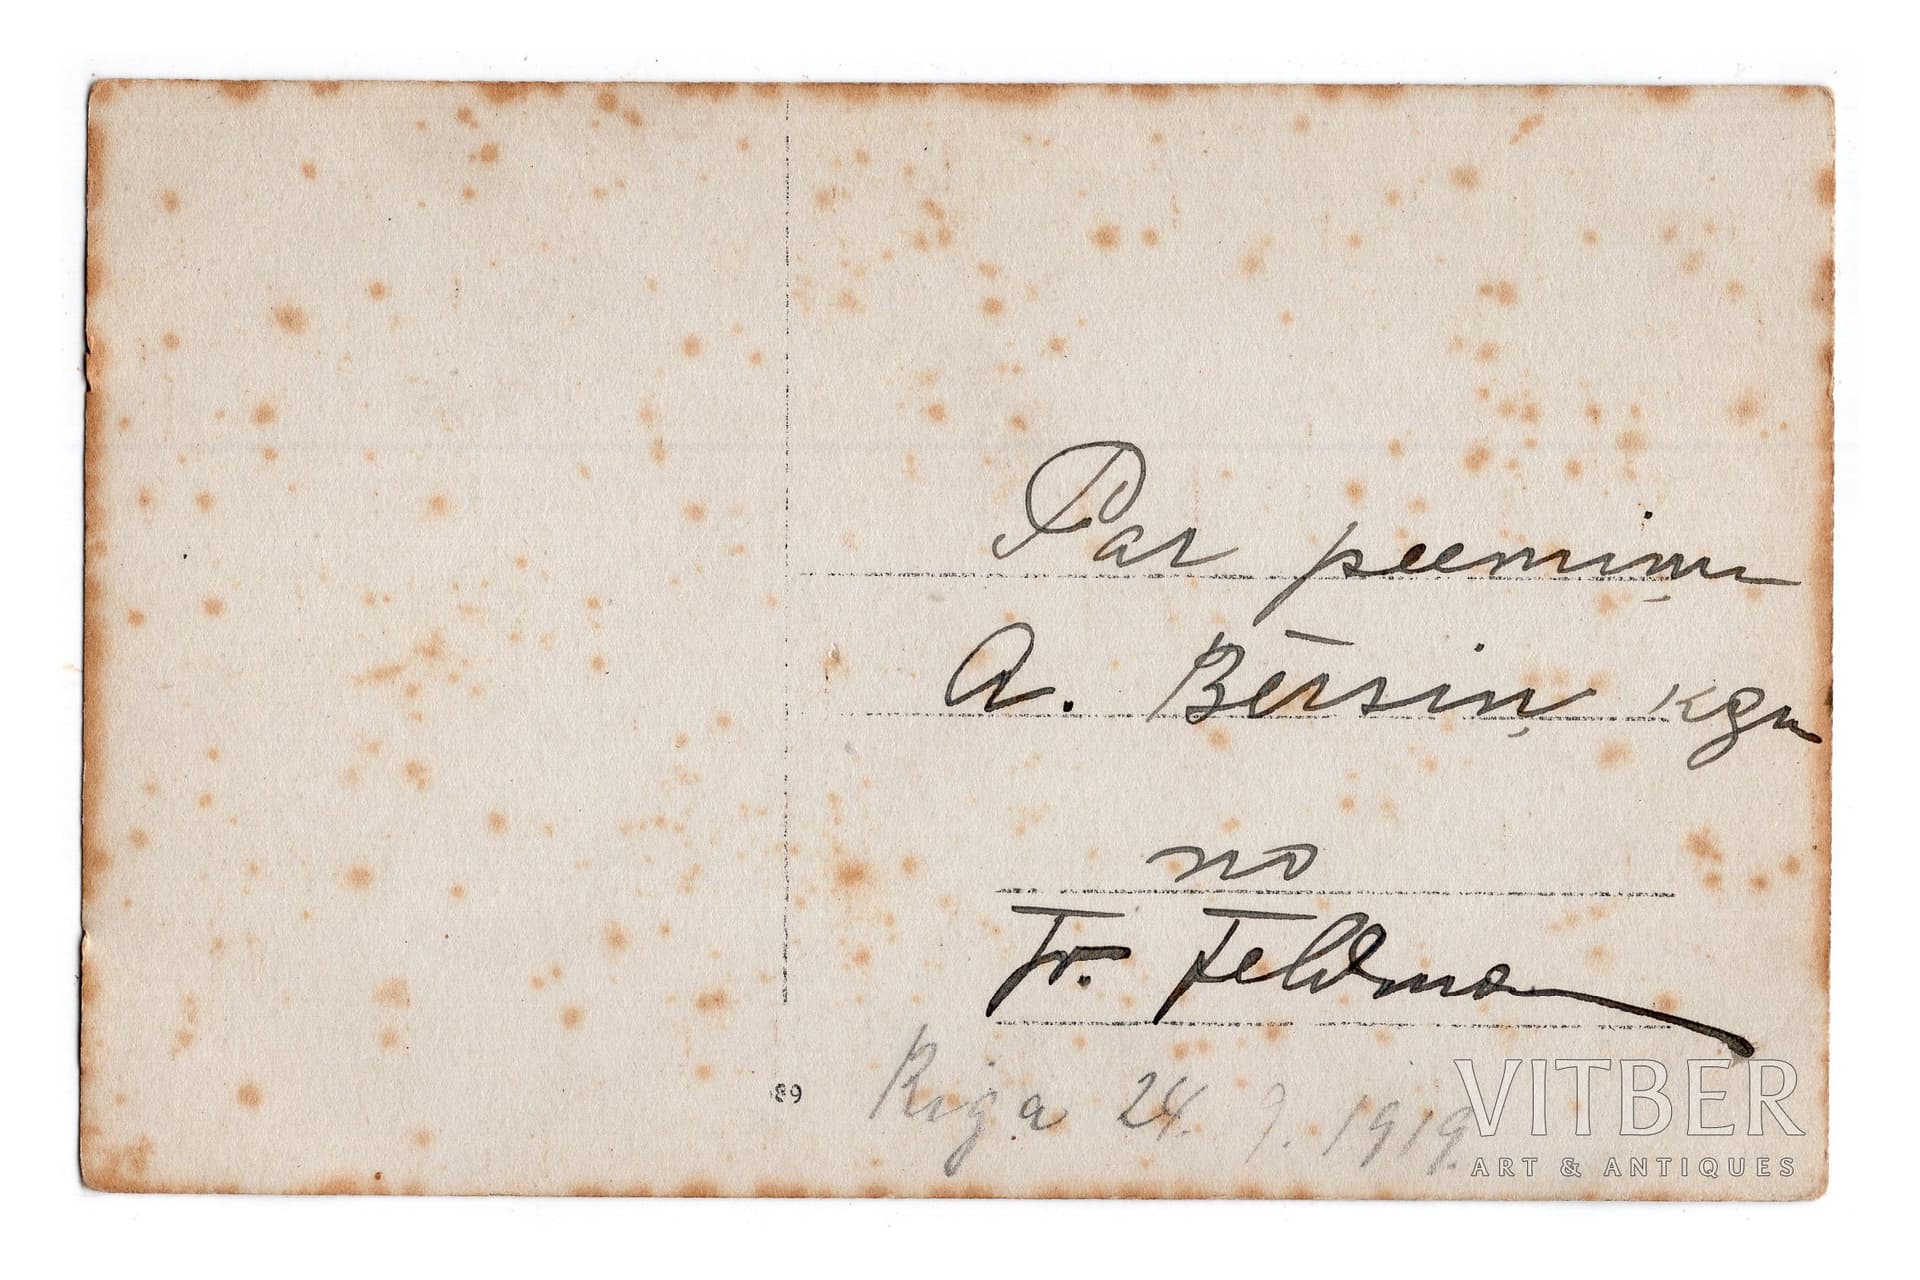 Par peemiņu
A. Bērsiņ kgu
no
Fr. Feldma
89
Riga 24. 9. 1919.
VITBER
ART & ANTIQUES